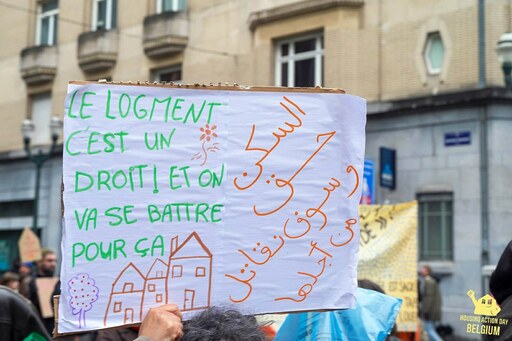 LE LOGMENT
C'EST UN
DROIT! ET ON
VA SE BATTRE
POUR ÇA
السكن
حق
وسوف نقاتل
من أجلها
HOUSING ACTION DAY
BELGIUM